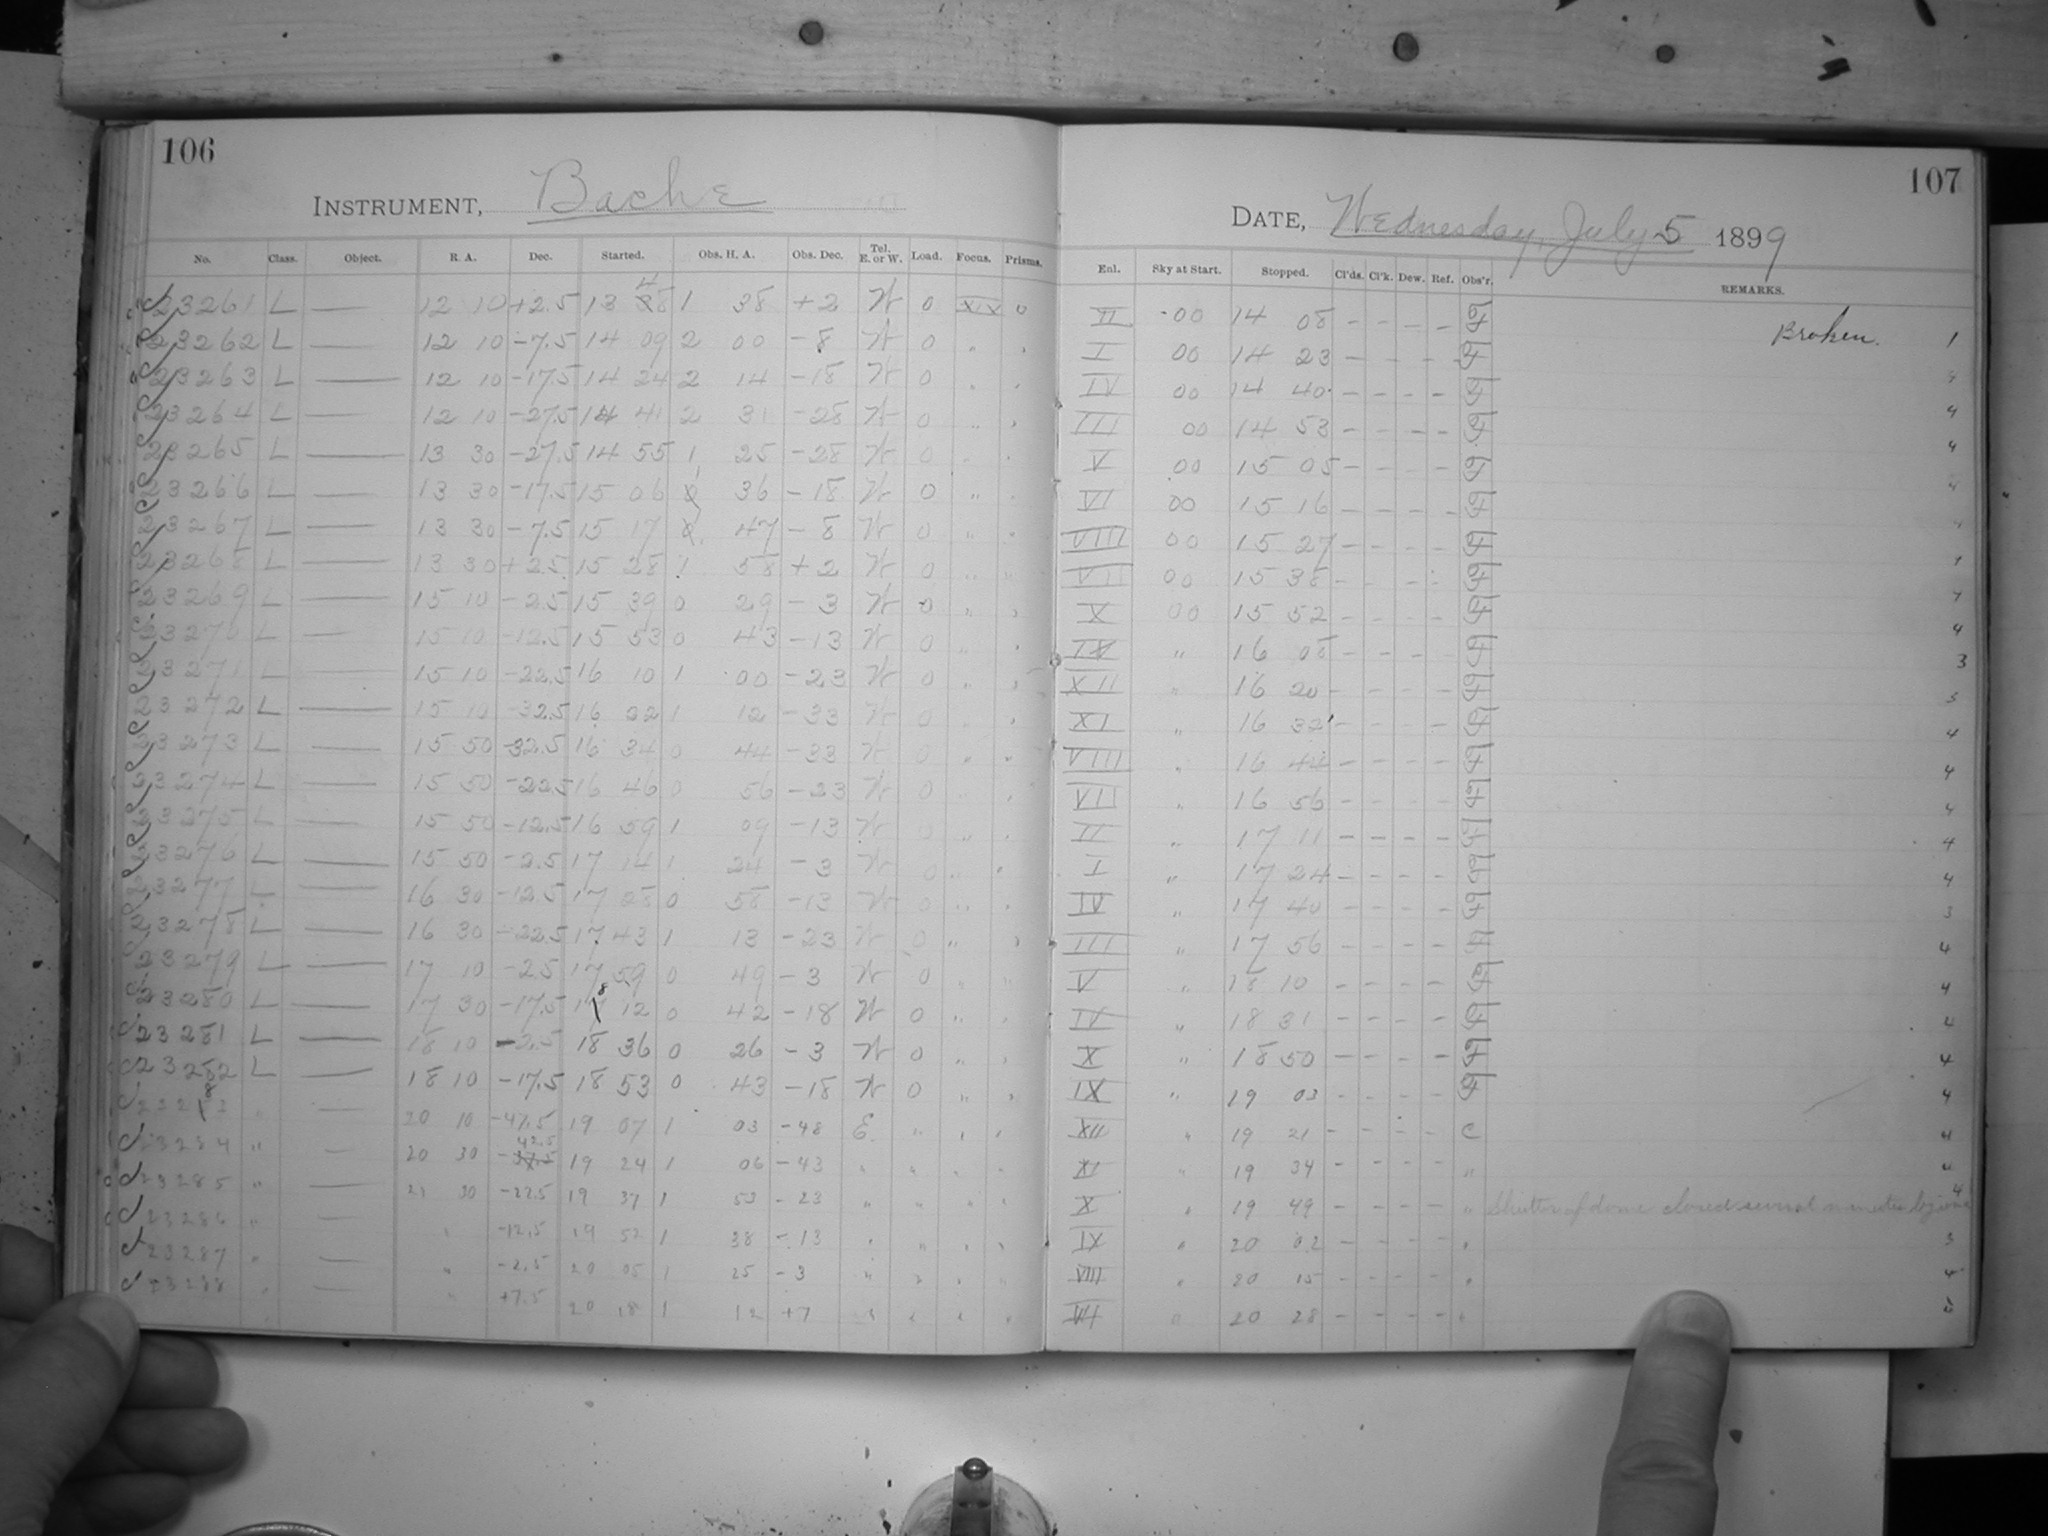 106
INSTRUMENT, Bache
No. Class. Object. R. A. Dec. Started. Obs. H. A. Obs. Dec. Tel. E. or W. Load. Focus. Prisms.
23261 L — 12 10 +2.5 13 48 1 38 +2 W 0 XIX 0
23262 L — 12 10 -7.5 14 09 2 00 -8 W 0 " "
23263 L — 12 10 -17.5 14 24 2 14 -18 W 0 " "
23264 L — 12 10 -27.5 14 41 2 31 -28 W 0 " "
23265 L — 13 30 -27.5 14 55 1 25 -28 W 0 " "
23266 L — 13 30 -17.5 15 06 1 36 -18 W 0 " "
23267 L — 13 30 -7.5 15 17 1 47 -8 W 0 " "
23268 L — 13 30 +2.5 15 28 1 58 +2 W 0 " "
23269 L — 15 10 -2.5 15 39 0 29 -3 W 0 " "
23270 L — 15 10 -12.5 15 53 0 43 -13 W 0 " "
23271 L — 15 10 -22.5 16 10 1 00 -23 W 0 " "
23272 L — 15 10 -32.5 16 22 1 12 -33 W 0 " "
23273 L — 15 50 -32.5 16 34 0 44 -33 W 0 " "
23274 L — 15 50 -22.5 16 46 0 56 -23 W 0 " "
23275 L — 15 50 -12.5 16 59 1 09 -13 W 0 " "
23276 L — 15 50 -2.5 17 14 1 24 -3 W 0 " "
23277 L — 16 30 -12.5 17 28 0 58 -13 W 0 " "
23278 L — 16 30 -22.5 17 43 1 13 -23 W 0 " "
23279 L — 17 10 -2.5 17 59 0 49 -3 W 0 " "
23280 L — 17 30 -17.5 18 12 0 42 -18 W 0 " "
23281 L — 18 10 -2.5 18 36 0 26 -3 W 0 " "
23282 L — 18 10 -17.5 18 53 0 43 -18 W 0 " "
23283 " — 20 10 -47.5 19 07 1 03 -48 E " " "
23284 " — 20 30 -42.5 19 24 1 06 -43 " " " "
23285 " — 21 30 -22.5 19 37 1 53 -23 " " " "
23286 " — " -12.5 19 52 1 38 -13 " " " "
23287 " — " -2.5 20 05 1 25 -3 " " " "
23288 " — " +7.5 20 18 1 12 +7 " " " "
107
DATE, Wednesday, July 5 1899
Enl. Sky at Start. Stopped. Cl'ds. Cl'k. Dew. Ref. Obs'r. REMARKS.
II 00 14 08 - - - - Broken. 1
I 00 14 23 - - - -
IV 00 14 40 - - - - 4
III 00 14 53 - - - - 4
V 00 15 05 - - - -
VI 00 15 16 - - - -
VIII 00 15 27 - - - -
VII 00 15 38 - - - -
X 00 15 52 - - - - 4
IX " 16 08 - - - - 3
XII " 16 20 - - - -
XI " 16 32 - - - - 4
VIII " 16 44 - - - - 4
VII " 16 56 - - - - 4
II " 17 11 - - - - 4
I " 17 24 - - - - 4
IV " 17 40 - - - - 3
III " 17 56 - - - - 4
V " 18 10 - - - - 4
IV " 18 31 - - - -
X " 18 50 - - - - 4
IX " 19 03 - - - - 4
XII " 19 21 - - - - C 4
XI " 19 34 - - - - "
X " 19 49 - - - - " Shutter of dome closed several minutes 4
IX " 20 02 - - - - " 3
VIII " 20 15 - - - - " 4
VII " 20 28 - - - - "